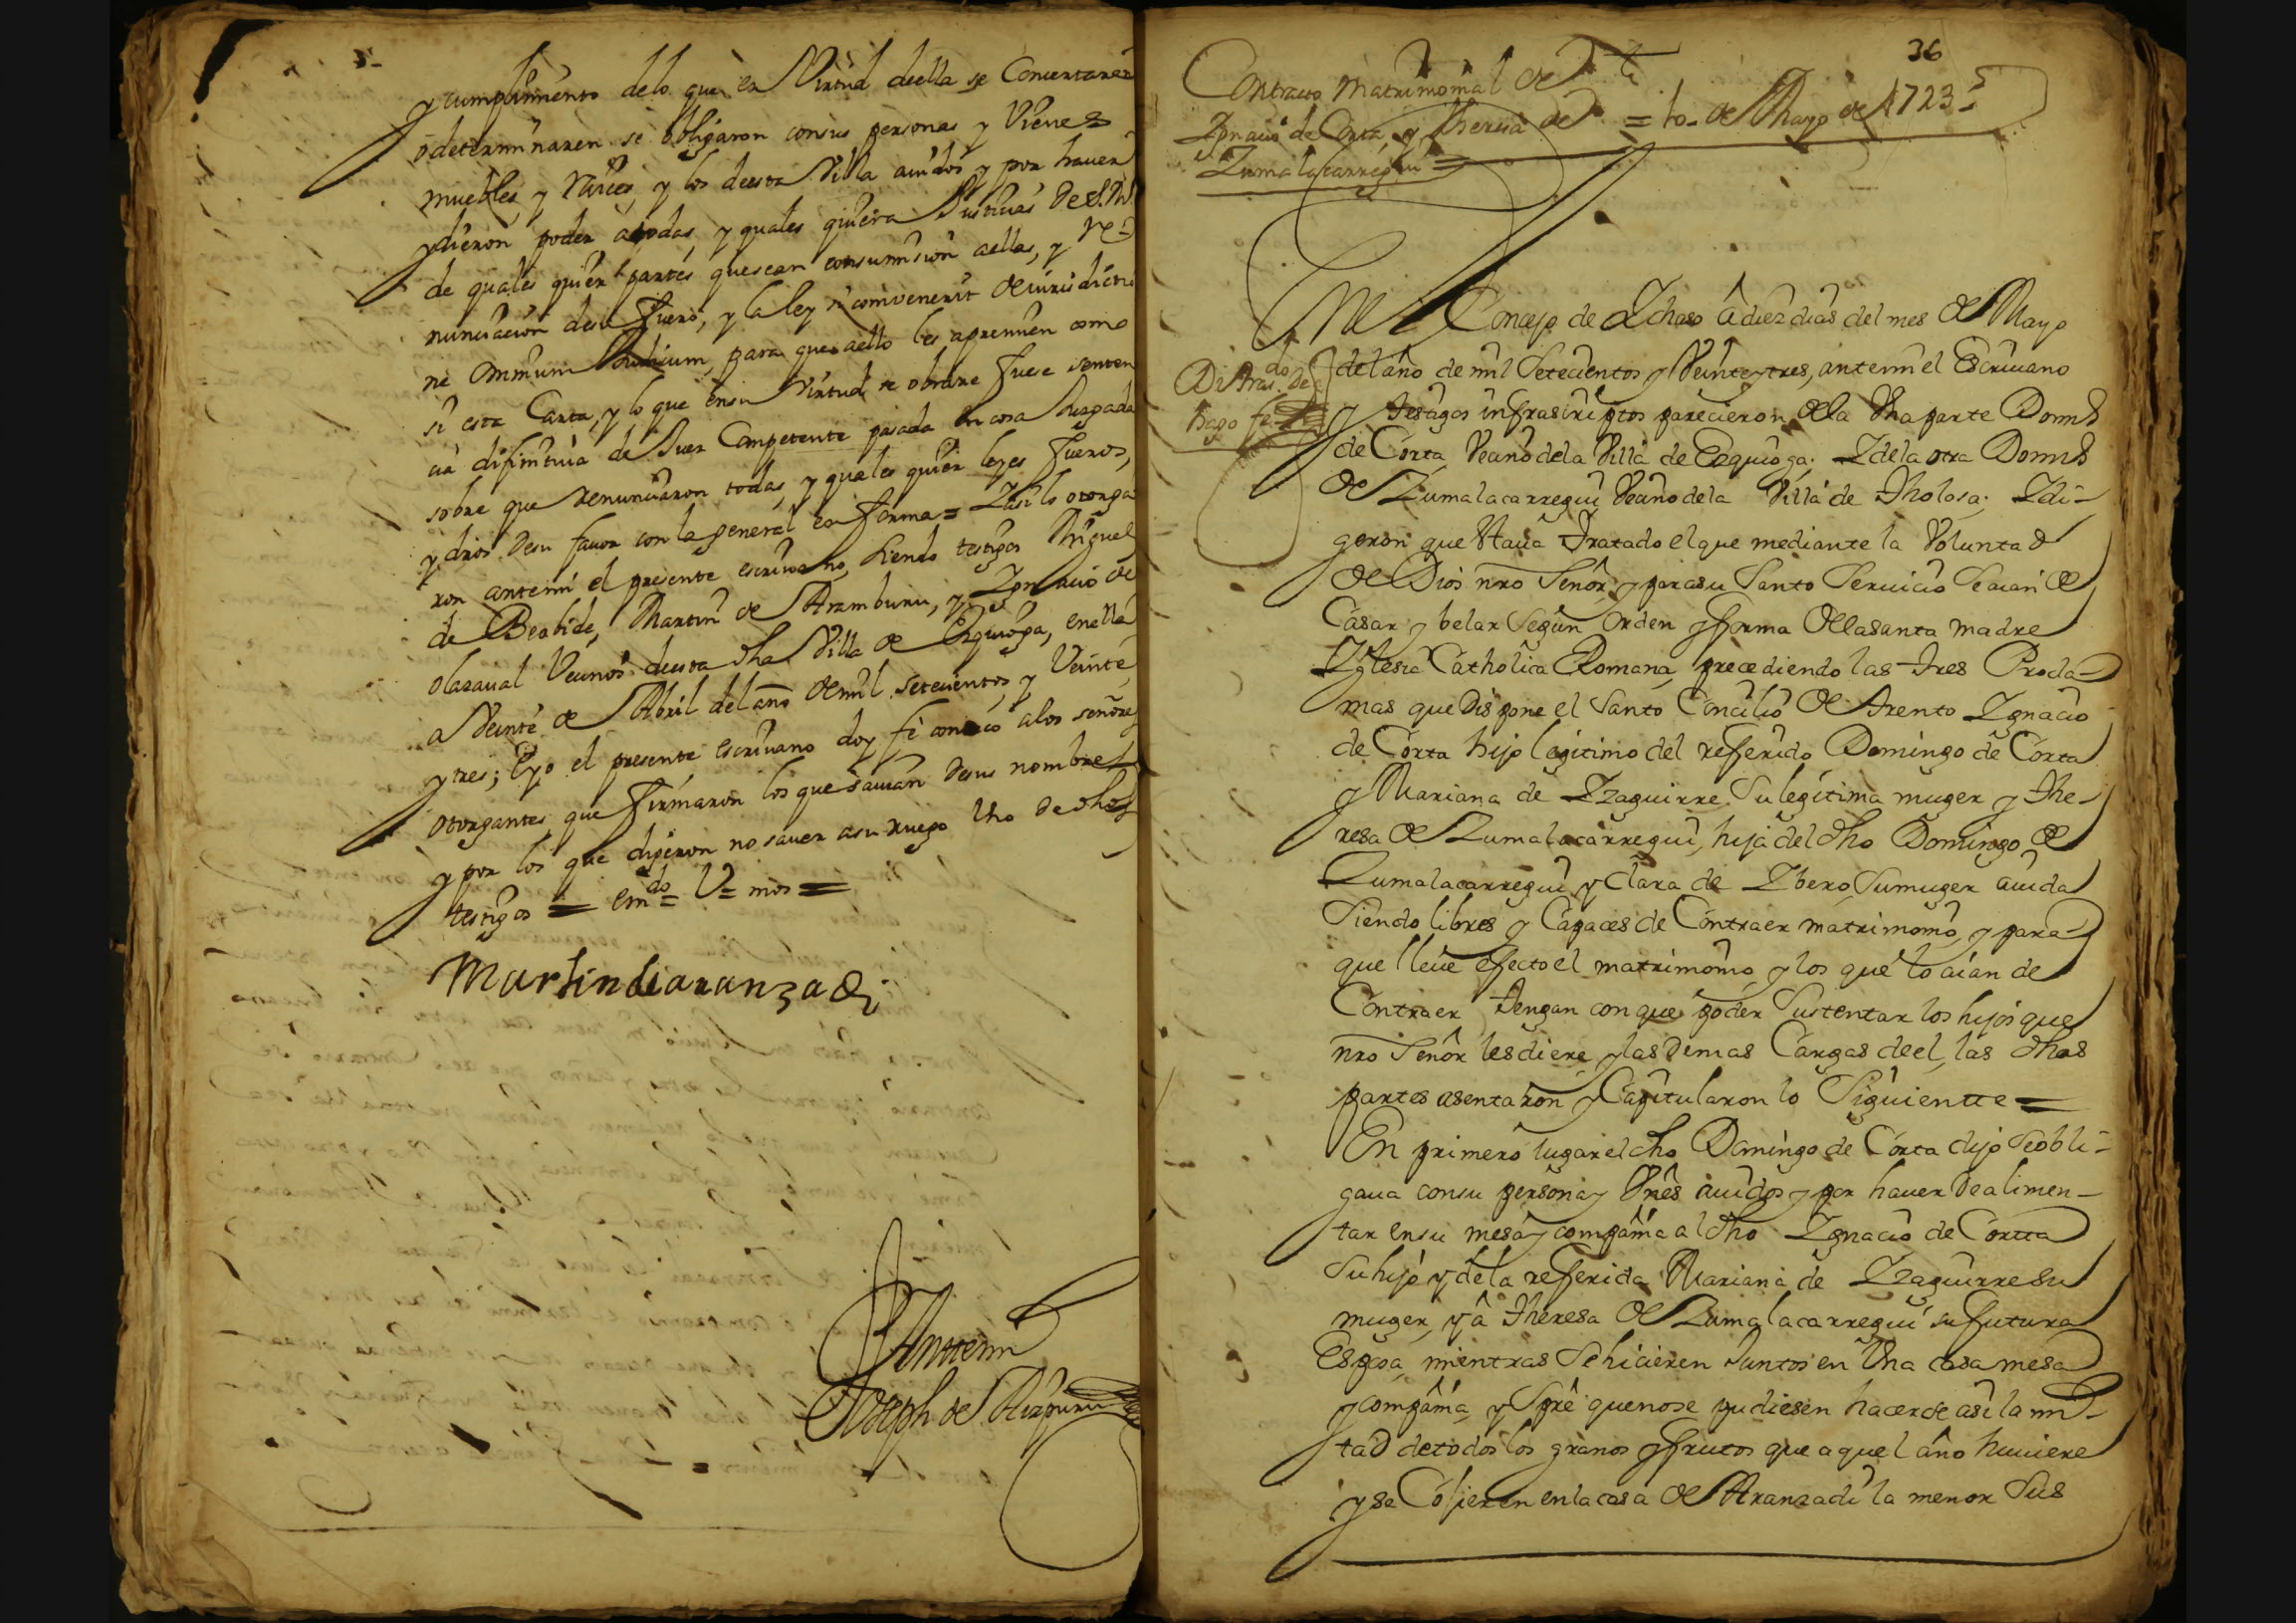 y cumplimiento delo que en Virtud de ella se Concertaren
o determinaren se obligaron consus personas y Vienes
muebles, y raices, y los de esta Villa auidos y por hauer
y dieron poder a todas, y quales quiera Justicias de S. M.
de quales quier partes que sean consumision aellas, y re-
nunciacion de su fuero, y la ley si convenerit de iurisdictio
ne omnium Judicum, para que aello les apremien como
si esta Carta, y lo que en su Virtud se obrare fuese senten
cia difinitiua de Juez Competente pasada en cosa Juzgada
sobre que renunciaron todas, y quales quier leyes fueros,
y dros desu fauor con la general en forma = Y asi lo otorga
ron antemi el presente escriuano, siendo testigos Miguel
de Beabide, Martin de Aramburu, y Ignacio de
Olazaual Vecinos de esta dha Villa de Ezquioga, en ella
a Veinte de Abril del año de mil setecientos y Veinte,
y tres; E yo el presente escriuano doy fe conozco alos señores
otorgantes que firmaron los que sauian de sus nombres
y por los que dijeron no sauer asu ruego Uno de dhos
testigos = em.do = V = mos =
Martin de aranzadi
Anttemi
Joseph de Aizpuru
36
Contrato Matrimonial de
Ignacio de Corta, y Theresa de = 10 - de Mayo de 1723
Zumalacarregui =
En el Concejo de Ychaso â diez dias del mes de Mayo
del año de mil Setecientos y Veinte y tres, antemi el Escriuano
y testigos infrascriptos parecieron de la Una parte Domo
de Corta Vecino dela Villa de Ezquioga; Y de la otra Domo
de Zumalacarregui Vecino dela Villa de Tholosa; Y di-
geron que Staua Tratado el que mediante la Voluntad
de Dios nro Señor, y para su Santo Seruicio Se aian de
Casar y belar Según orden y forma de la santa madre
Yglesia Catholica Romana, precediendo las Tres Procla-
mas que Dispone el Santo Concilio de Trento Ygnacio
de Corta hijo legitimo del referido Domingo de Corta
y Mariana de Yzaguirre Su legítima muger y The-
resa de Zumalacarregui, hija del dho Domingo de
Zumalacarregui y Clara de Ybero, Su muger auida
Siendo libres y Capaces de Contraer matrimonio, y para
que lleue efecto el matrimonio, y los que lo aian de
Contraer Tengan con que poder Sustentar los hijos que
nro Señor les diere, y las Demas Cargas de el, las dhas
partes asentaron y Capitularon lo Siguientte =
En primero lugar el dho Domingo de Corta dijo Se obli-
gaua consu persona y Vnes auidos y por hauer De alimen-
tar en su mesa y compañia al dho Ygnacio de Cortta
Su hijo y de la referida Mariana de Yzaguirre Su
muger, y â Theresa de Zumalacarregui su futura
Esposa, mientras Se hicieren Juntos en Una casa mesa
y compañia, y Spre que no se pudiesen hacer de asi la mi-
tad de todos los granos y frutos que aquel año huuiere
y se Cojieren en la casa de Aranzadi la menor Sus
Di tras.do De
hago fe